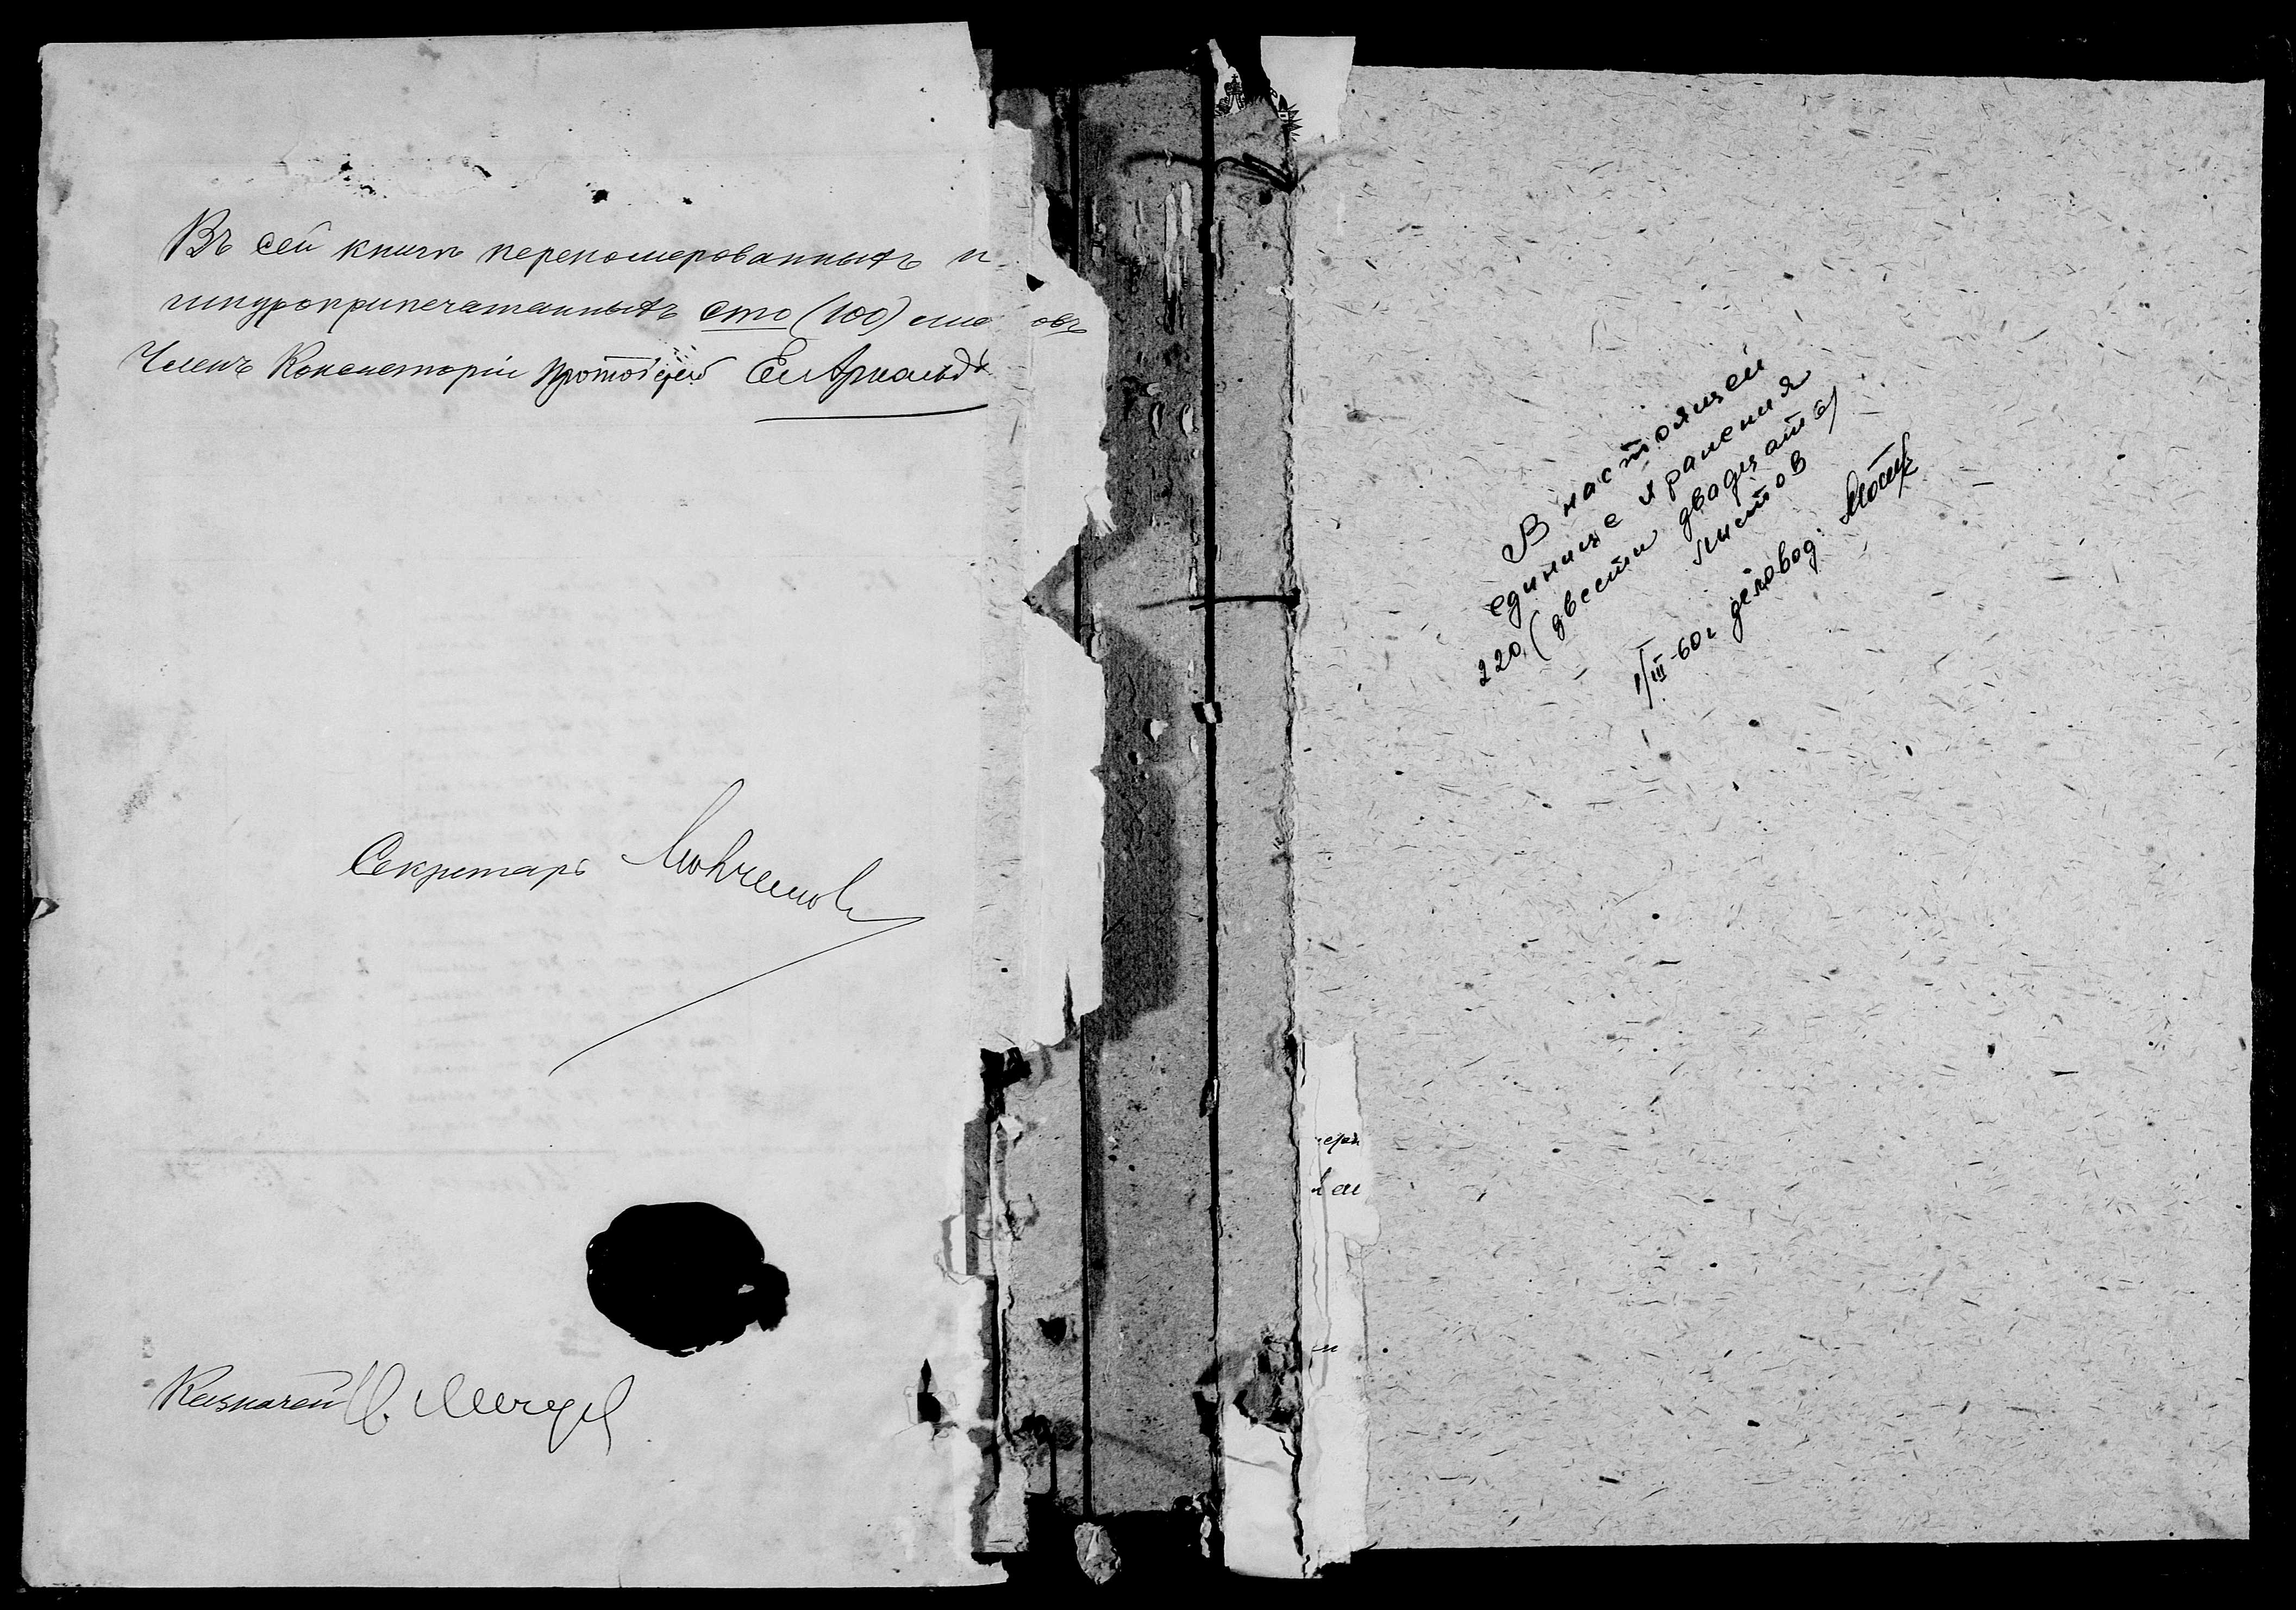 Въ сей книгѣ переномерованныхъ и
шнуроприпечатанныхъ сто (100) лис овъ
Членъ Консисторіи Протоіерей
Секретарь
Казначей
В настоящей
единице хранения
220 (двести двадцать)
листов
1/III-60г деловод: